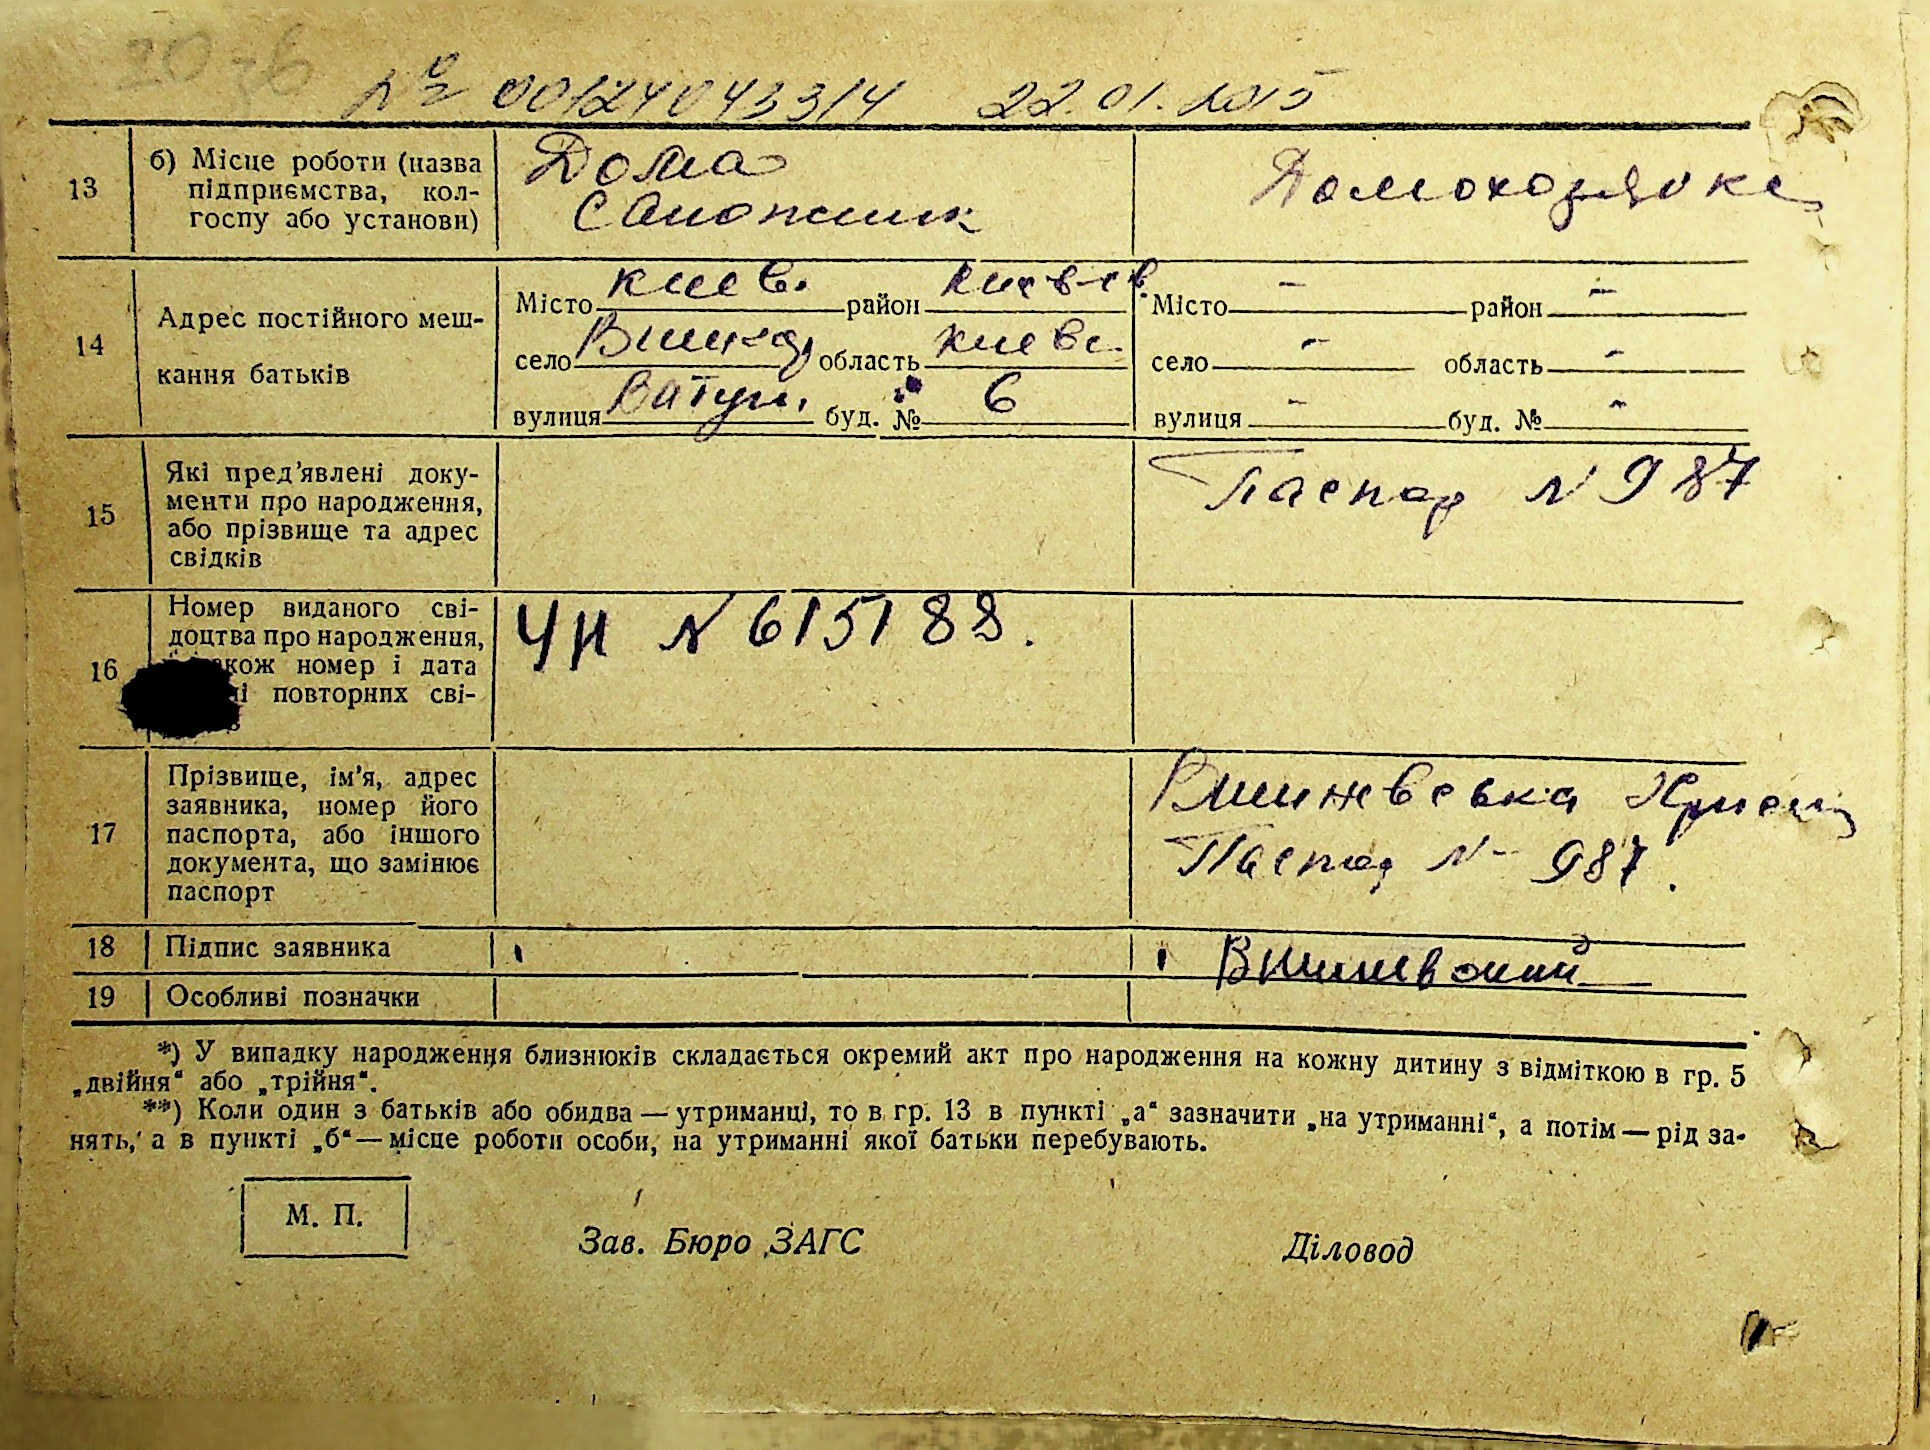 № 00124043314 22.01.2015
13
б) Місце роботи (назва
підприємства, кол-
госпу або установи)
Дома
Сапожник
Домохозяйка
14
Адрес постійного меш-
кання батьків
Місто Киев. район Киевск.
село область Киевс.
вулиця Ватут. буд. № 6
Місто - район -
село - область -
вулиця - буд. № -
15
Які пред'явлені доку-
менти про народження,
або прізвище та адрес
свідків
Паспор N 987
16
Номер виданого сві-
доцтва про народження,
також номер і дата
повторних сві-
ЧН N 615188.
17
Прізвище, ім'я, адрес
заявника, номер його
паспорта, або іншого
документа, що замінює
паспорт
Вишневська
Паспор N- 987.
18
Підпис заявника
Вишневский
19
Особливі позначки
*) У випадку народження близнюків складається окремий акт про народження на кожну дитину з відміткою в гр. 5
„двійня“ або „трійня“.
**) Коли один з батьків або обидва — утриманці, то в гр. 13 в пункті „а“ зазначити „на утриманні“, а потім — рід за-
нять, а в пункті „б“ — місце роботи особи, на утриманні якої батьки перебувають.
М. П.
Зав. Бюро ЗАГС
Діловод